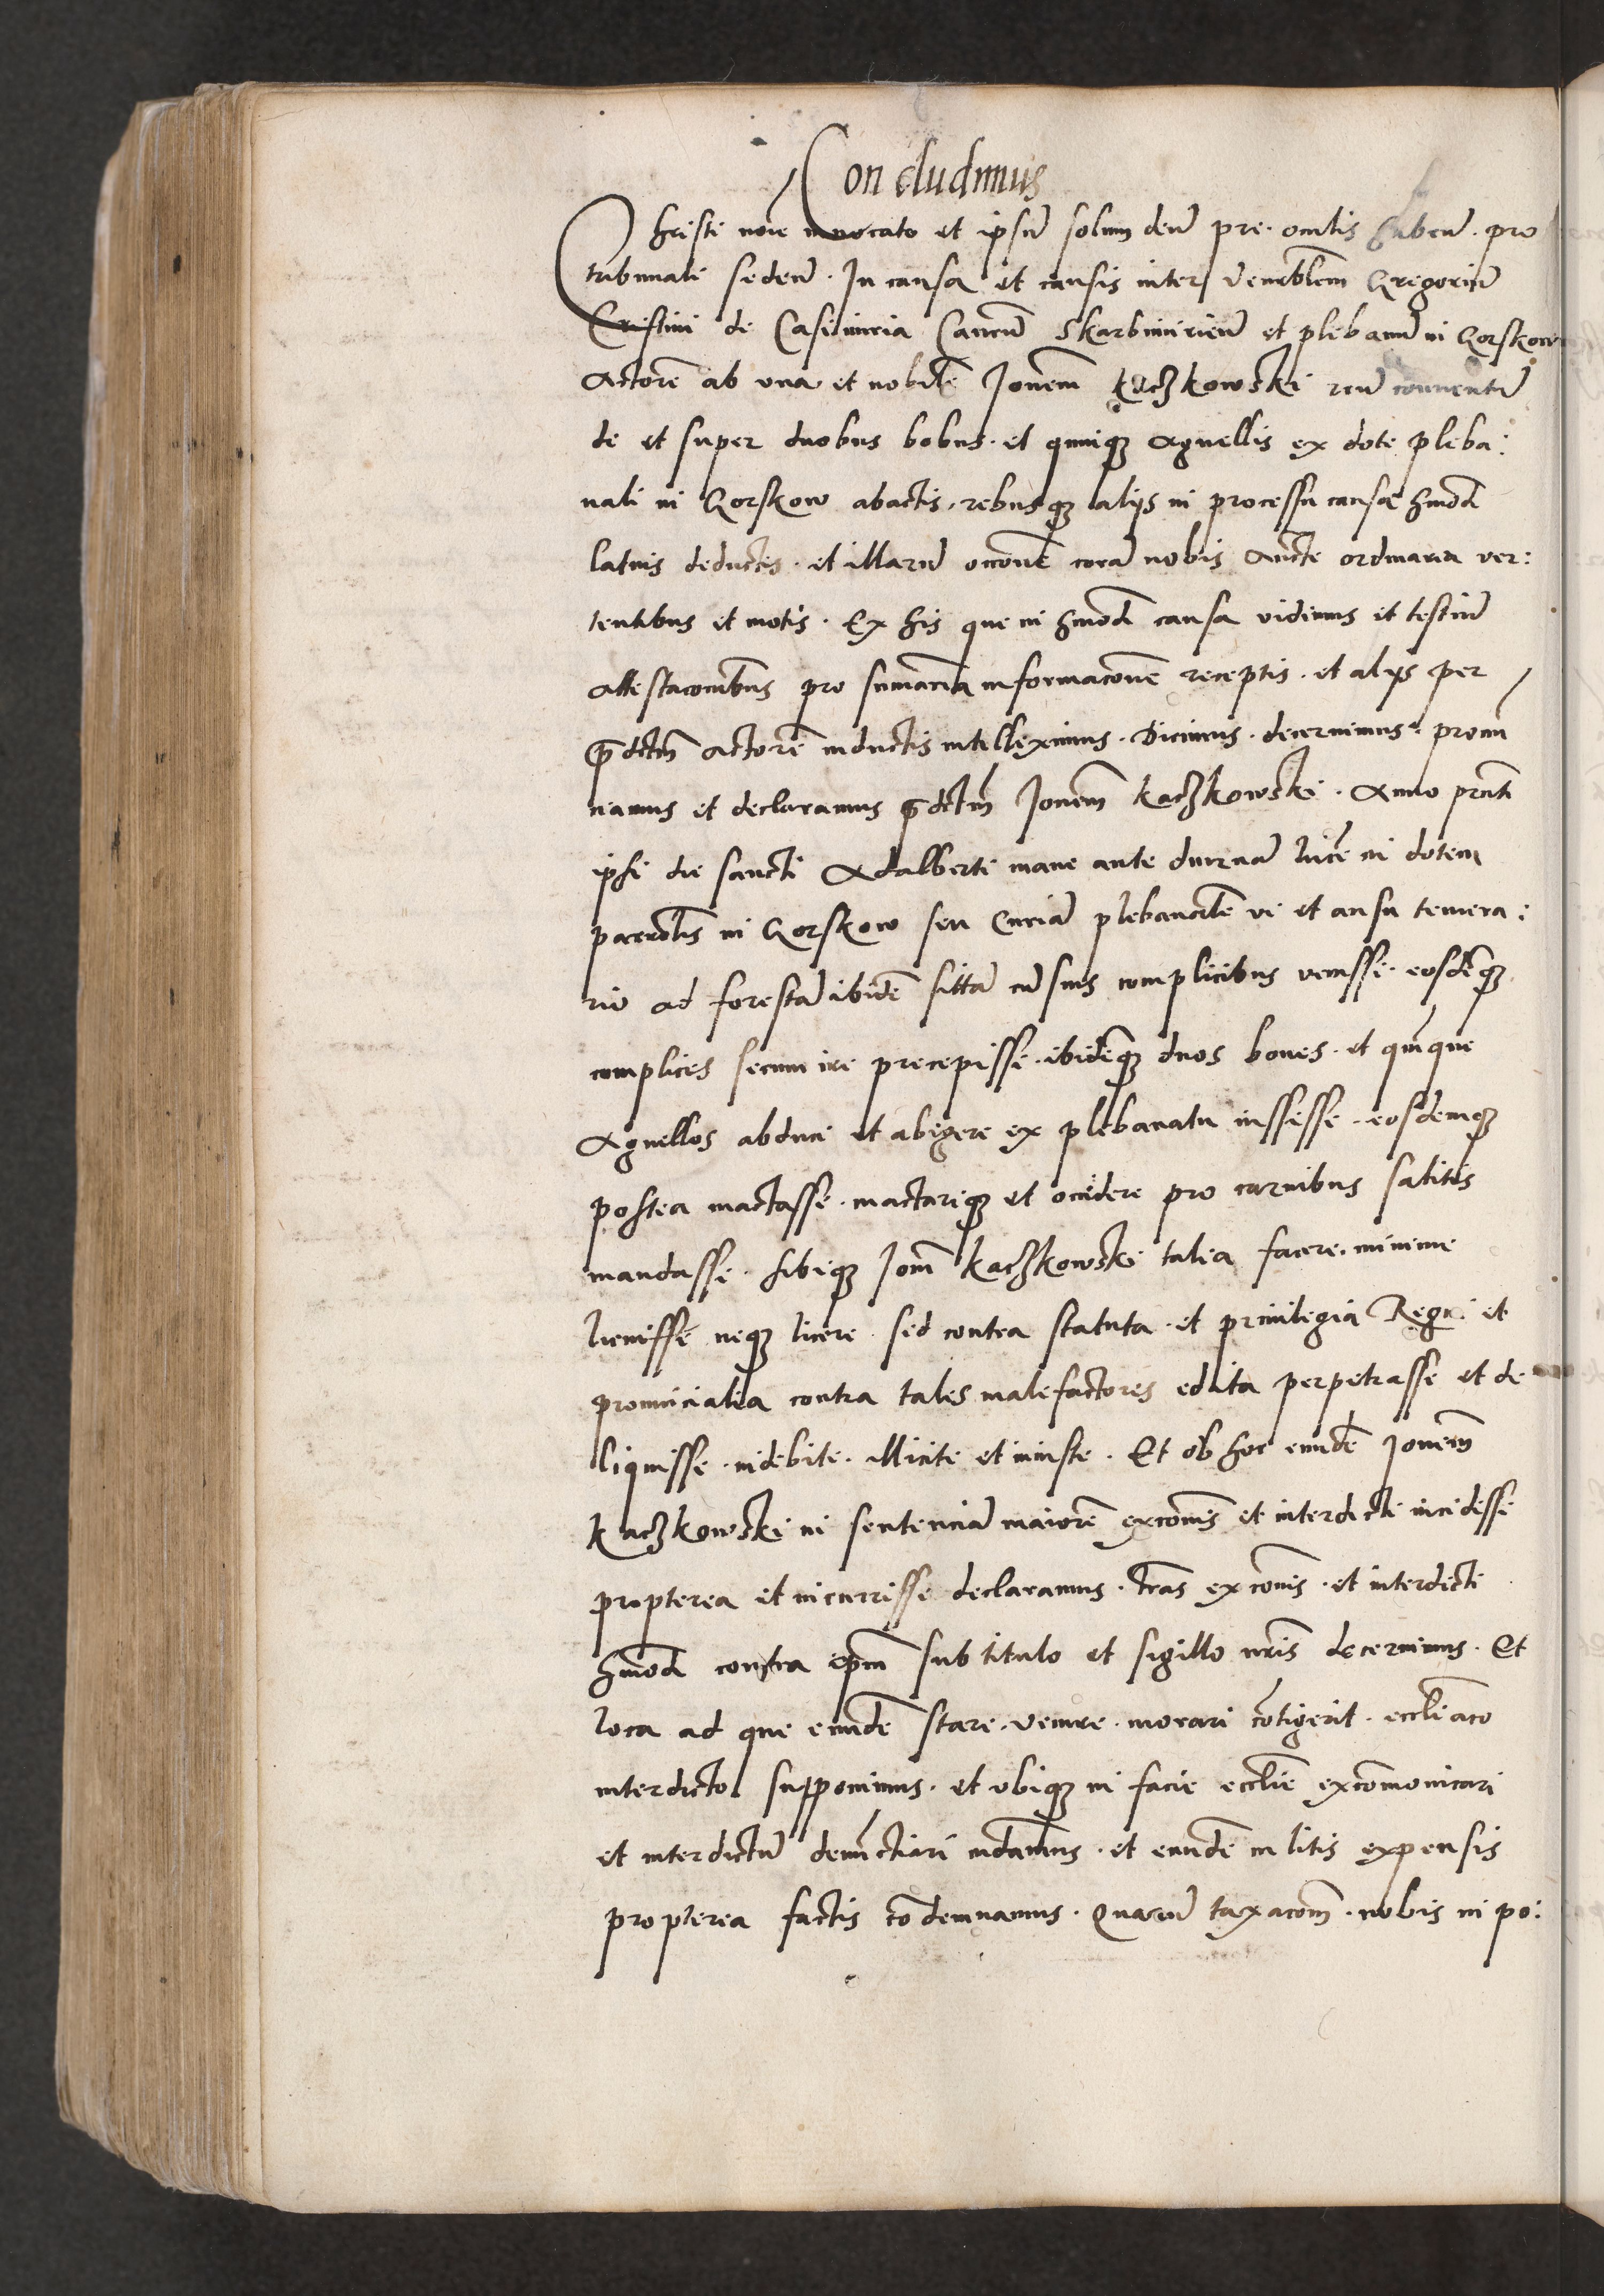 Concludimus
Christi noīe invocato et ipsū solum deū pre oculis habeñ. pro
tribunali sedeñ. In causa et causis inter venēblem Gregoriū
Cristini de Casimiria Canᷠcū Skarbimirieñ et plebanū in Gorskow
Actorē ab una et nobilē Joñem Kaczkowski reū conventū
de et super duobus bobus. et quinq3 Agnellis ex dote pleba:
nali in Gorskow abactis. rebusq3 alijs in processu causae hmōdi
latius deductis. et illarū occōne corā nobis Aucte ordinaria ver:
tentibus et motis. Ex his que in hmōdi causa vidimus et testiū
attestacōnibus pro sumaria informacōne receptis. et alijs per
p̄dctm̄ actorē inductis intelleximus. Dicimus. decernimus. pronū
ciamus et declaramus p̄dctm̄ Joñem Kaczkowski. Anno prñti
ipsi die sancti Adalberti mane ante diurnā lucē in dotem
parrochlis in Gorskow seu Curiā plebanalē vi et ausu temera:
rio ad forestā ibidē sittā cū suis complicibus venisse. eosdēq3
complices secum ire precepisse. ibidēq3 duos boves. et quīque
Agnellos abduci et abigere ex plebanatu iussisse. eosdemq3
postea mactasse. mactariq3 et occidere pro carnibus salitis
mandasse. sibiq3 Joñi Kaczkowski talia facere. minime
licuisse neq3 licere sed contra statuta. et privilegia Regni et
provincialia contra tales malefactores edita perpetrasse et de
liquisse. indebite. illicite et iniuste. Et ob hoc eundē Joñem
Kaczkowski in sentenciā maiorē excōnis et interdicti incidesse
propterea et incurrisse declaramus. lr̄as excōnis. et interdicti
hmōdi contra ip̄m sub titulo et sigillo nr̄is decernimus. Et
loca ad que eundē stare. venire. morari cōtigerit. eccliāco
interdicto supponimus. et ubiq3 in facie ecclīe excōmonicari
et interdictū denūctiari mdamus. et eundē in litis expensis
propterea factis cōdemnamus. Quarū taxacōm̄. nobis in po: